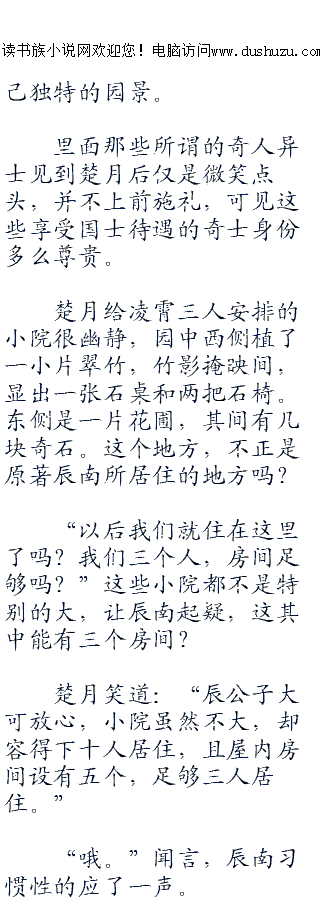 读书族小说网欢迎您！电脑访问www.dushuzu.com
己独特的园景。
里面那些所谓的奇人异
士见到楚月后仅是微笑点
头，并不上前施礼，可见这
些享受国士待遇的奇士身份
多么尊贵。
楚月给凌霄三人安排的
小院很幽静，园中西侧植了
一小片翠竹，竹影掩映间，
显出一张石桌和两把石椅。
东侧是一片花圃，其间有几
块奇石。这个地方，不正是
原著辰南所居住的地方吗？
“以后我们就住在这里
了吗？我们三个人，房间足
够吗？”这些小院都不是特
别的大，让辰南起疑，这其
中能有三个房间？
楚月笑道：“辰公子大
可放心，小院虽然不大，却
容得下十人居住，且屋内房
间设有五个，足够三人居
住。”
“哦。”闻言，辰南习
惯性的应了一声。